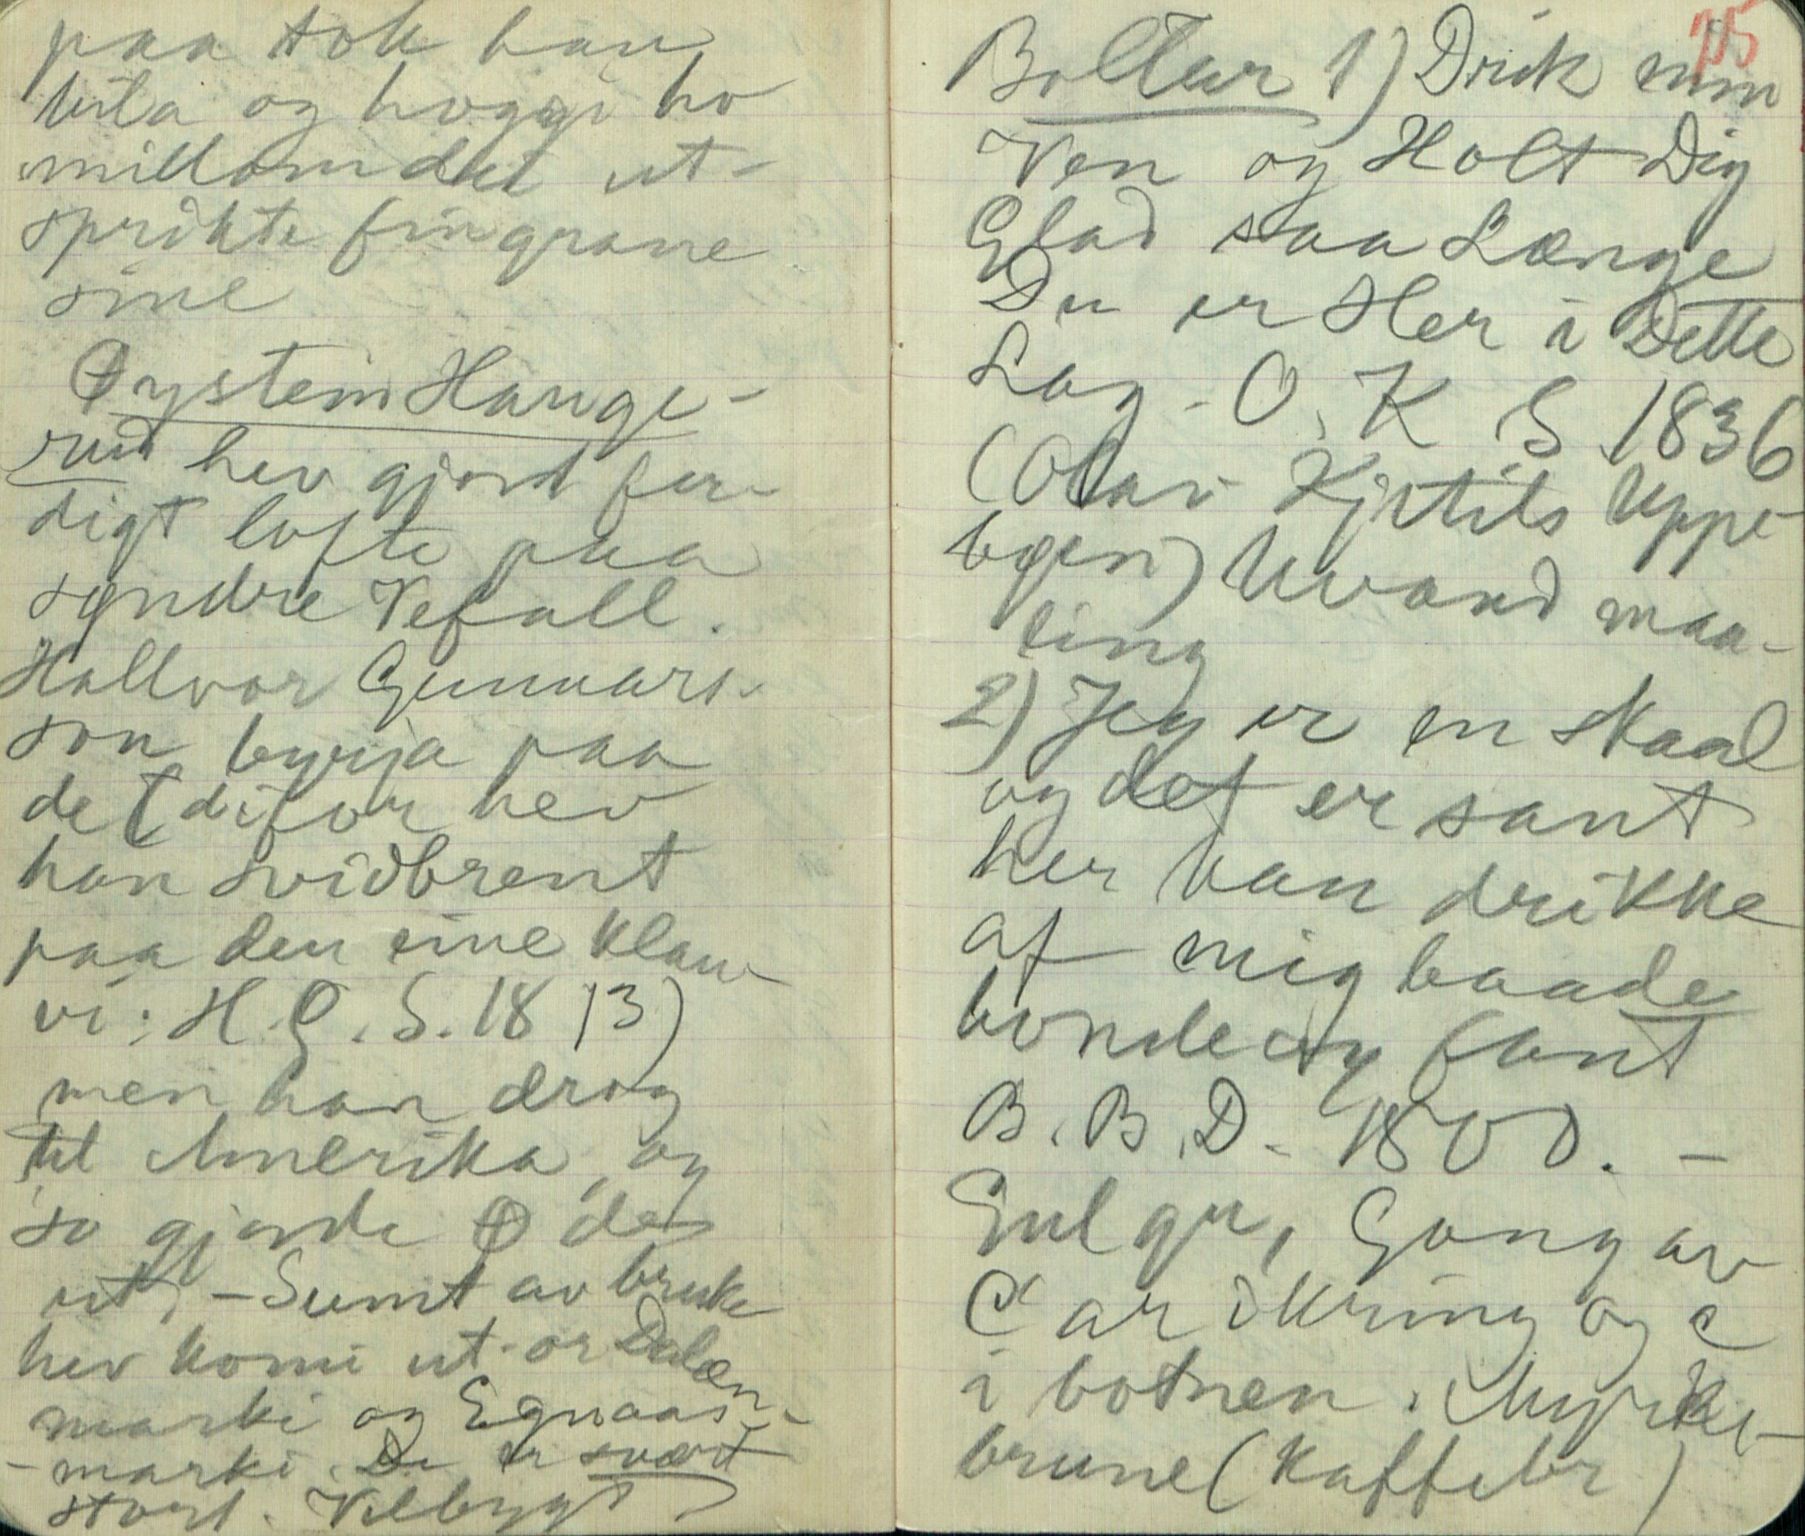 paa tok han
bila og hoggji ho
millom dei ut-
sprikte fingrane
sine
Øystein Hauge-
rud hev gjort fer-
digt lofte paa
syndre Vefall.
Hallvor Gunnars-
son byrja paa
de (difor hev
han svidbrent
paa den eine klam
vi: H. G. S. 1813)
men han drog
til Amerika, og
so gjorde Ø de
ut, - Sumt av bruke
hev komi ut or Dalen
marki og Egnaas-
marki. De er svært
stort. Velbygt
75
Boltar 1) Drik min
Ven og Holt Dig
Glad saa Længe
Du er Her i Dette
Lag. O. K S 1836
(Olav Kjetils Uppe-
bøen) Uvand maa-
ling
2) Jeg er en skaal
og det er sant
her kan drikke
af mig baade
bonde og fant
B. B. D. 1800. -
Gul gr, Gong av
C ar ikring og c
i botnen. Myrke-
brune (kaffebr)